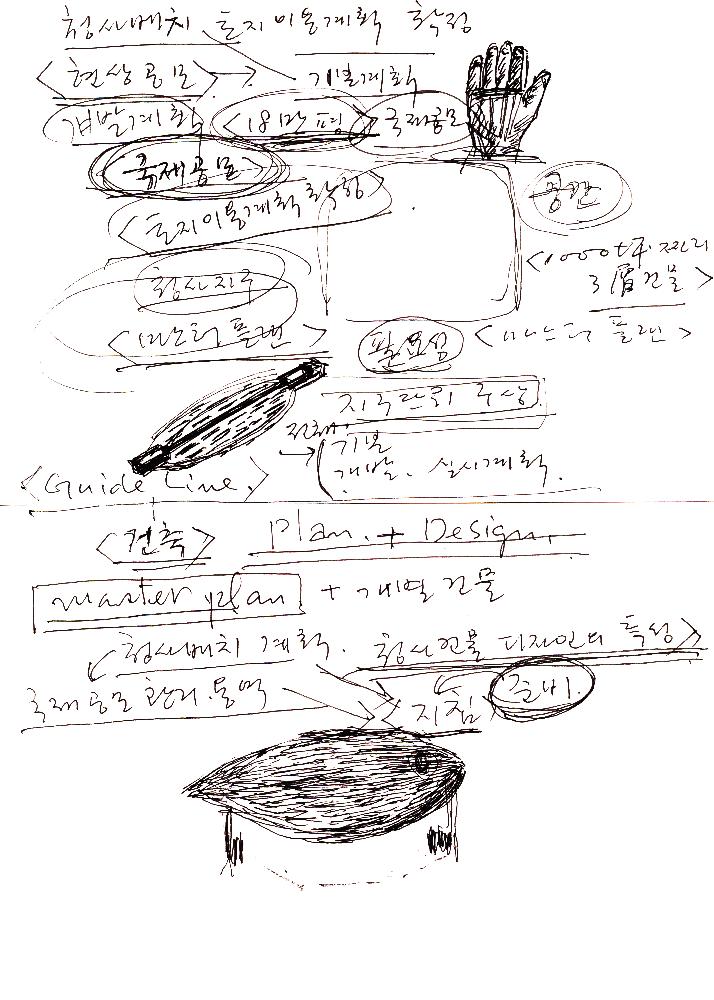 청사배치 토지이용계획 확정
<현상공모> → 기본계획
개발계획 <18만평> 국제공모
<국제공모>
<토지이용계획 확정>
공간
청사지구
<1000t 짜리
3층건물>
<마스터 플랜>
필요성 <마스터 플랜>
지구단위 구상
전체
기본
개발. 실시계획.
<Guide Line.>
<건축> Plan. + Design.
master plan + 개별건물
청사배치 계획. 청사건물 디자인의 특성>
국제공모 관리.용역 <지침 준비.